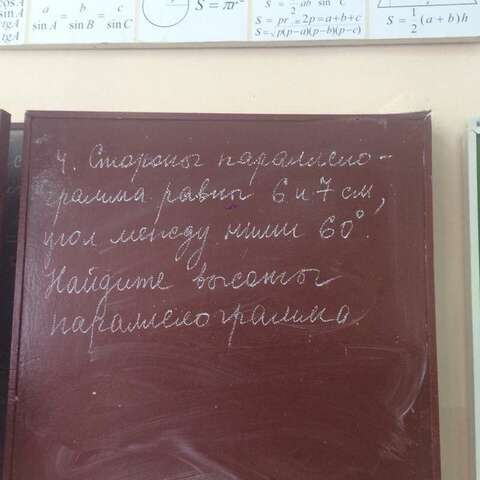 a/sin A = b/sin B = c/sin C
S = πr²
ab sin C
S = pr 2p = a+b+c
S = √p(p-a)(p-b)(p-c)
S = 1/2 (a+b)h
4. Стороны параллело-
грамма равны 6 и 7 см,
угол между ними 60°.
Найдите высоты
параллелограмма.